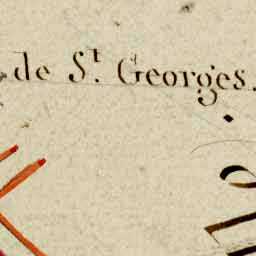 de S.t Georges.